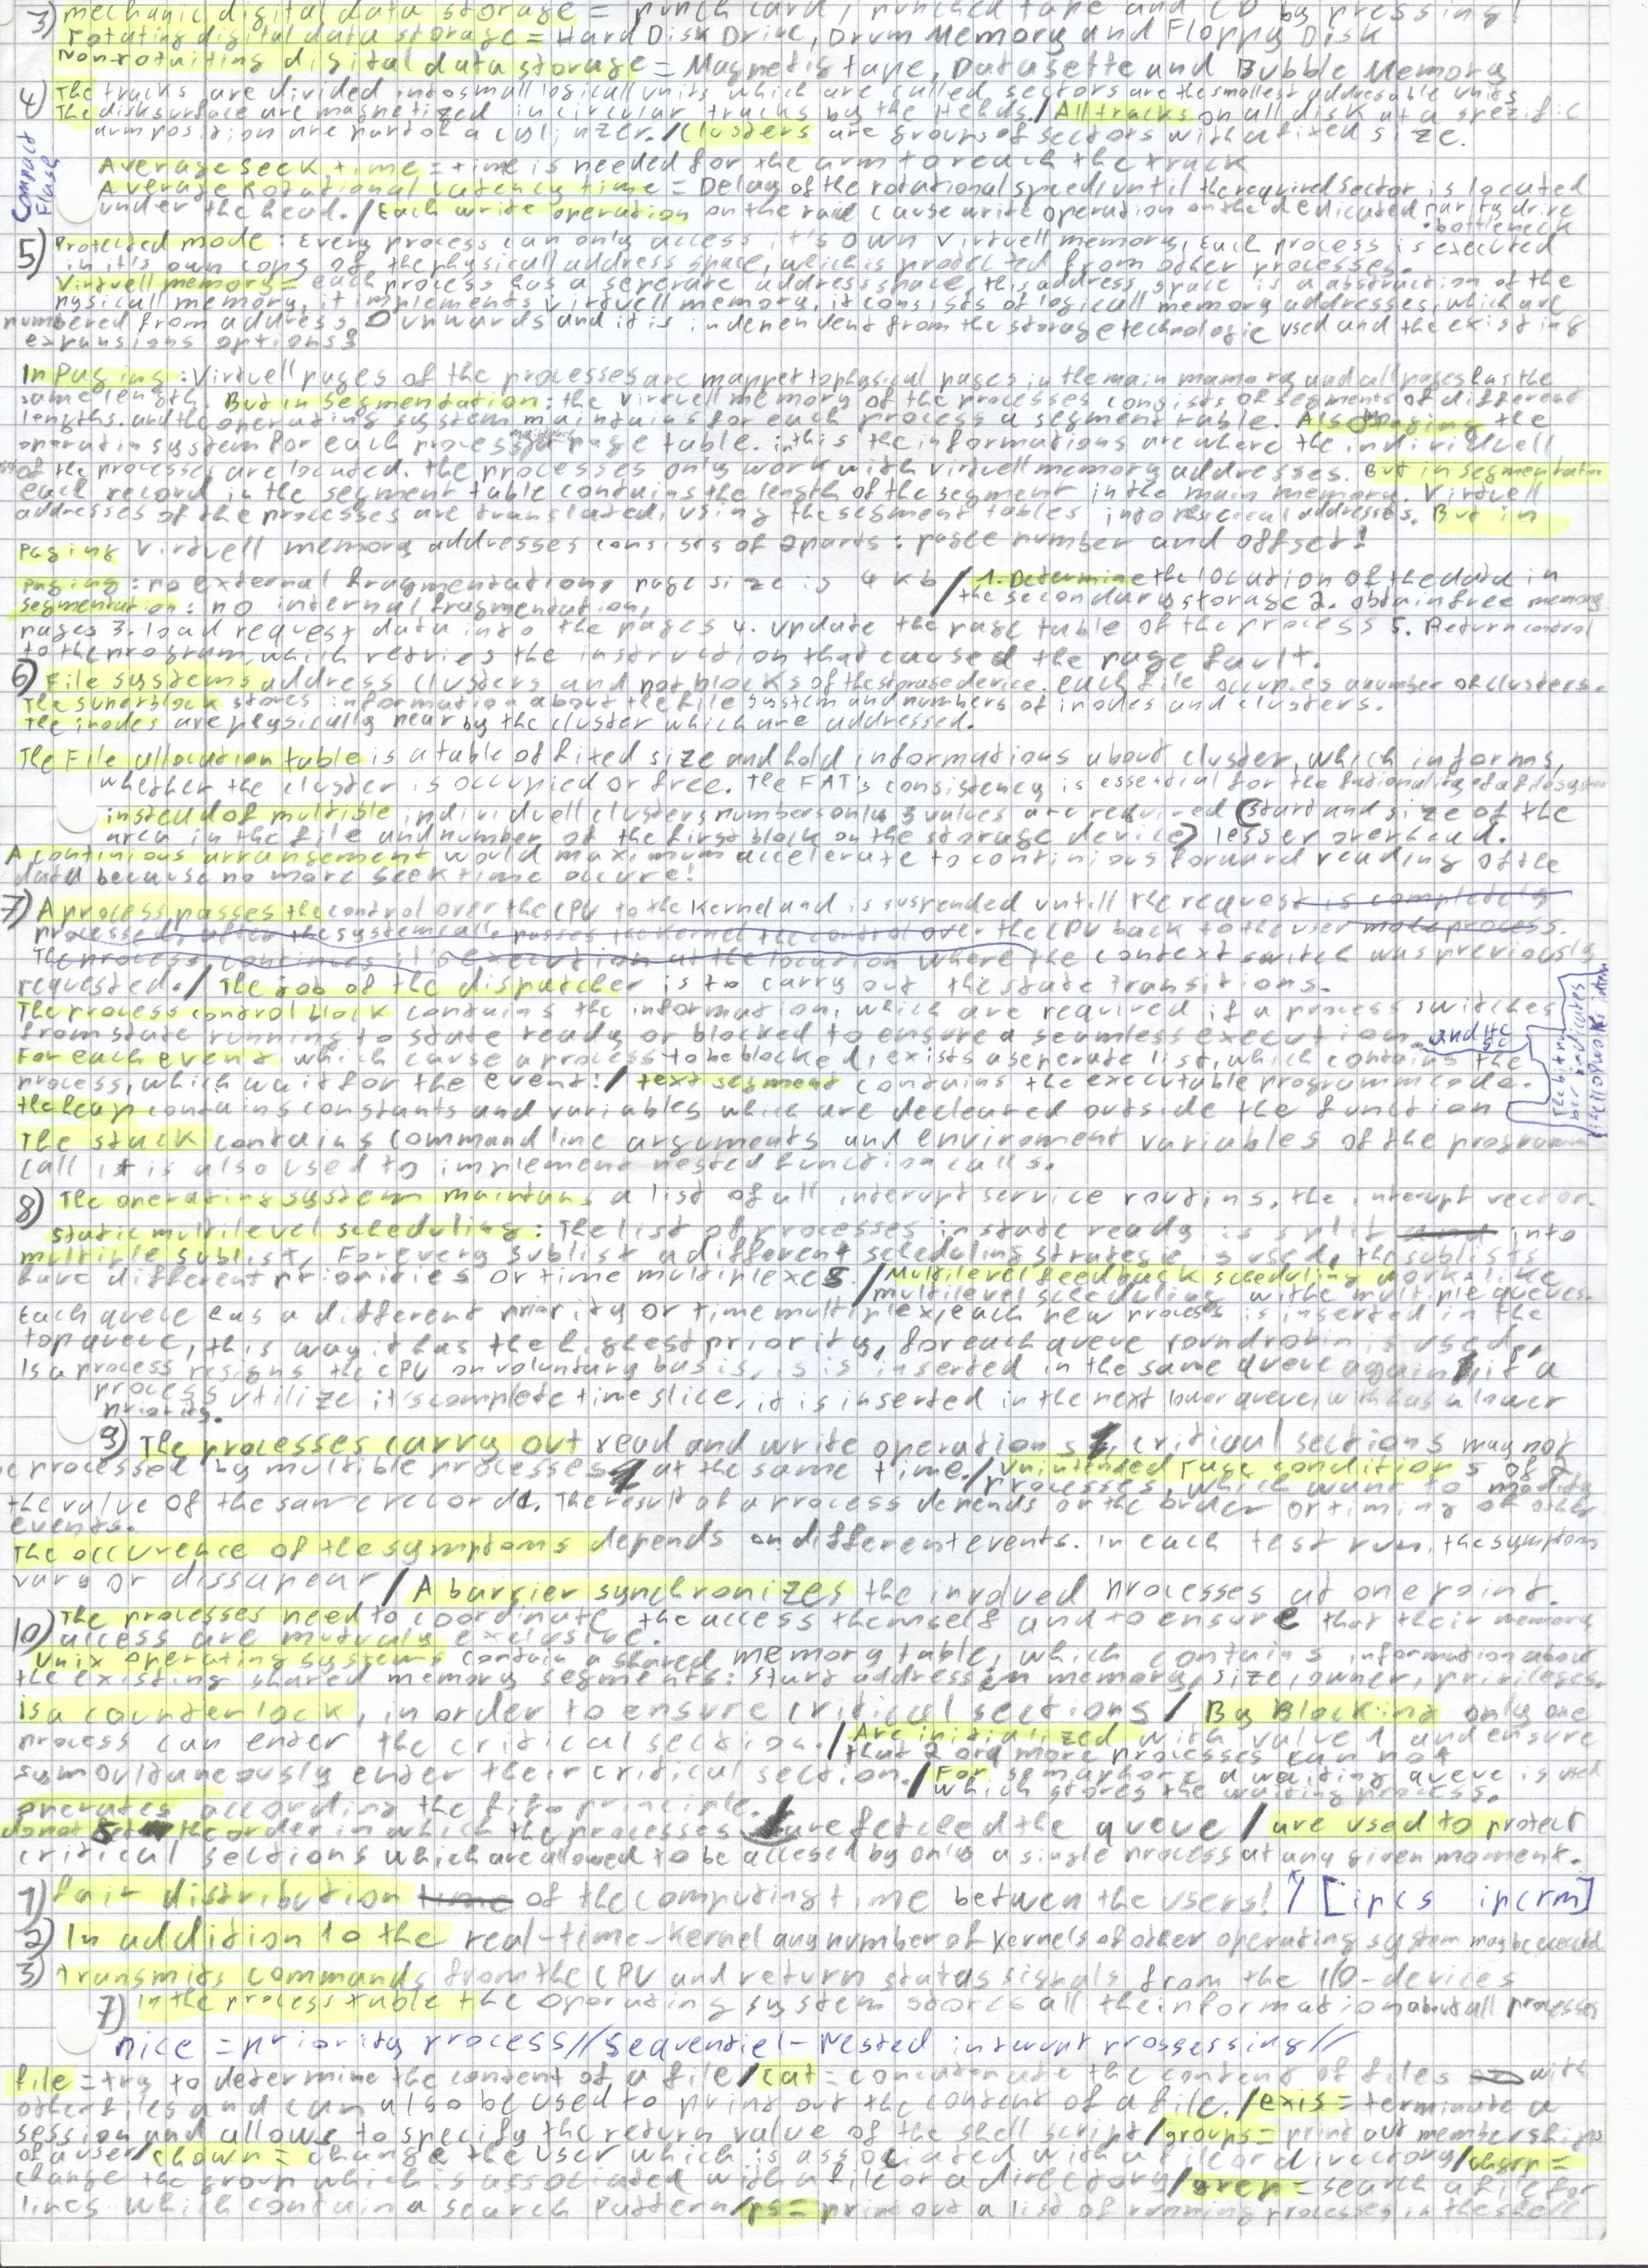 3) mechanic digital data storage = punch card, punched tape and CD by pressing!
rotating digital data storage = Hard Disk Drive, Drum Memory and Floppy Disk
Nonrotating digital data storage = Magnetic tape, Datasette and Bubble Memory
4) The tracks are divided into small logicall units which are called sectors are the smallest addressable units
The disk surface are magnetized in circular tracks by the Heads. / All tracks on all disk at a spezific
arm position are part of a cylinzer. / Clusters are groups of sectors with a fixed size.
Compact Flash
Average seek time = time is needed for the arm to reach the track
Average Rotational Latency time = Delay of the rotational speed until the required Sector is located
under the head. / Each write operation on the raid cause write operation on the dedicated parity drive
• bottleneck
5) Protected mode: Every process can only access it's own virtuell memory, Each process is executed
in it's own copy of the physicall address space, which is protected from other processes.
Virtuell memory = each process has a seperate address space, this address space is a abstraction of the
pysicall memory, it implements virtuell memory, it consists of logicall memory addresses, which are
numbered from address 0 upwards and it is independent from the storage technologie used and the existing
expansions options!
In Paging: Virtuell pages of the processes are mappet to physical pages in the main mamory and all pages has the
same length. But in Segmentation: the virtuell memory of the processes consists of segments of different
lengths. and the operating system maintains for each process a segment table. Also paging the
operatin system for each process page table. in this the informations are where the individuell
of the processes are located. the processes only work with virtuell memory addresses. But in Segmentatin
each record in the segment table contains the length of the segment in the main memory. Virtuell
addresses of the processes are translated, using the segment tables into physical addresses. But in
Paging Virtuell memory addresses consists of 2 parts: page number and offset!
Paging: no external fragmentation, page size is 4 kb / 1. Determine the location of the data in
segmentation: no internal fragmentation, the secondary storage 2. obtain free memory
pages 3. load request data into the pages 4. update the page table of the process 5. Return control
to the program, which retries the instruction that caused the page fault.
6) File systems address clusters and not blocks of the storage device. each file occupies a number of clusters.
The superblock stores information about the file system and numbers of inodes and clusters.
the inodes are physically near by the cluster which are addressed.
The File allocation table is a table of fixed size and hold informations about cluster, which informs,
whether the cluster is occupied or free. The FAT's consistency is essential for the
instead of multible individuell clusters numbers only 3 values are required (start and size of the
area in the file and number of the first block on the storage device) lesser overhead.
A continious arrangement would maximum accelerate to continious forward reading of the
data because no more seek time occure!
7) A process passes the control over the CPU to the Kernel and is suspended untill the request is completely
processed, after the system call passes the kernel the control over the CPU back to the user mode process.
The process continues it's execution at the location where the context switch was previously
requested. / The job of the dispatcher is to carry out the state transitions.
The process control block contains the information, which are required if a process switches
from state running to state ready or blocked to ensure a seamless execution.
For each event which cause a process to be blocked, exists a seperate list, which contains the
process, which wait for the event! / text segment contains the executable programmcode.
the heap contains constants and variables which are decleared outside the function
The stack contains command line arguments and enviroment variables of the program
call it is also used to implement nested function calls.
8) The operating system maintans a list of all interupt service routins, the interupt vector.
static multilevel scheduling: The list of processes in state ready is split and into
multiple sublist, For every sublist a different scheduling strategie is used, the sublists
have different priorities or time multiplexes. / Multilevel feedback scheduling works like
multilevel scheduling with multiple queues.
Each queue has a different priority or time multiplex, each new process is inserted in the
top queue, this way it has the highest priority, for each queue roundrobin is used,
Is a process resigns the CPU on voluntary basis, is is inserted in the same queue again, if a
process utilize it's complete time slice, it is inserted in the next lower queue, with has a lower
priority.
9) The processes carry out read and write operations, critical sections may not
be processed by multible processes at the same time. / Unintended race conditions of 2
processes, which want to modify
the value of the same record. The result of a process depends on the order or timing of other
events.
The occurence of the symptoms depends on different events. in each test run, the symptoms
vary or dissapear / A barrier synchronizes the involved processes at one point.
10) The processes need to coordinate the access themself and to ensure that their memory
access are mutualy exclusive.
Unix operating systems contain a shared memory table, which contains information about
the existing shared memory segments: start address in memory, size, owner, privileges.
is a counter lock, in order to ensure critical sections / By Blocking only one
process can enter the critical section. / Are initialized with value 1 and ensure
that 2 ord more processes can not
symoultaneously enter their critical section. / For semaphore a waiting queue is used
which stores the waiting process.
operates according the fifo principle.
donot set the order in which the processes are fetched the queue / are used to protect
critical sections which are allowed to be accesed by only a single process at any given moment.
1) fair distribution time of the computing time betwen the users! [ipcs ipcrm]
2) In addition to the real-time-kernel any number of kernels of other operating system may be
3) transmits commands from the CPU and return status signals from the I/O-devices
7) In the process table the operating system stores all the information about all processes
nice = priority process // Sequentiel - Nested interupt prossessing //
file = try to determine the content of a file / cat = concatenate the content of files with
other files and can also be used to print out the content of a file. / exis = terminate a
session and allows to specify the return value of the shell script / groups = print out memberships
of a user / chown = change the user which is associated with a file or directory / chgrp =
change the group which is associated with a file or a directory / grep = search a file for
lines which contain a search pattern / ps = print out a list of running processes in the shell